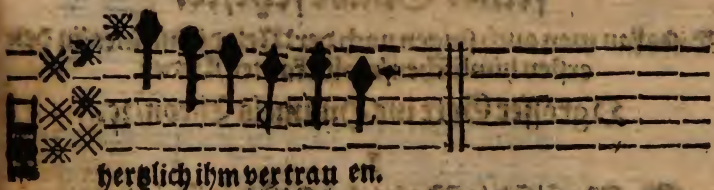 hertzlich ihm vertrau en.